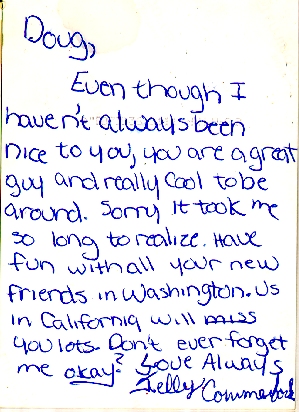 Doug,
Even though I
haven't always been
nice to you, you are a great
guy and really cool to be
around. Sorry it took me
so long to realize. Have
fun with all your new
friends in Washington. Us
in California will miss
you lots. Don't ever forget
me okay? Love Always